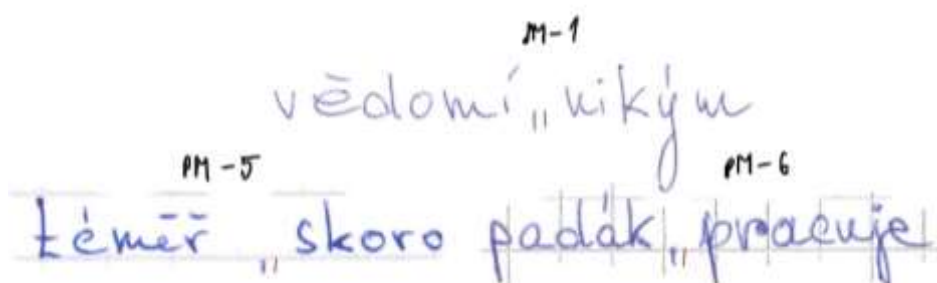 PM-1
vědomí „ nikým
PM-5 PM-6
téměř „ skoro padák „ pracuje